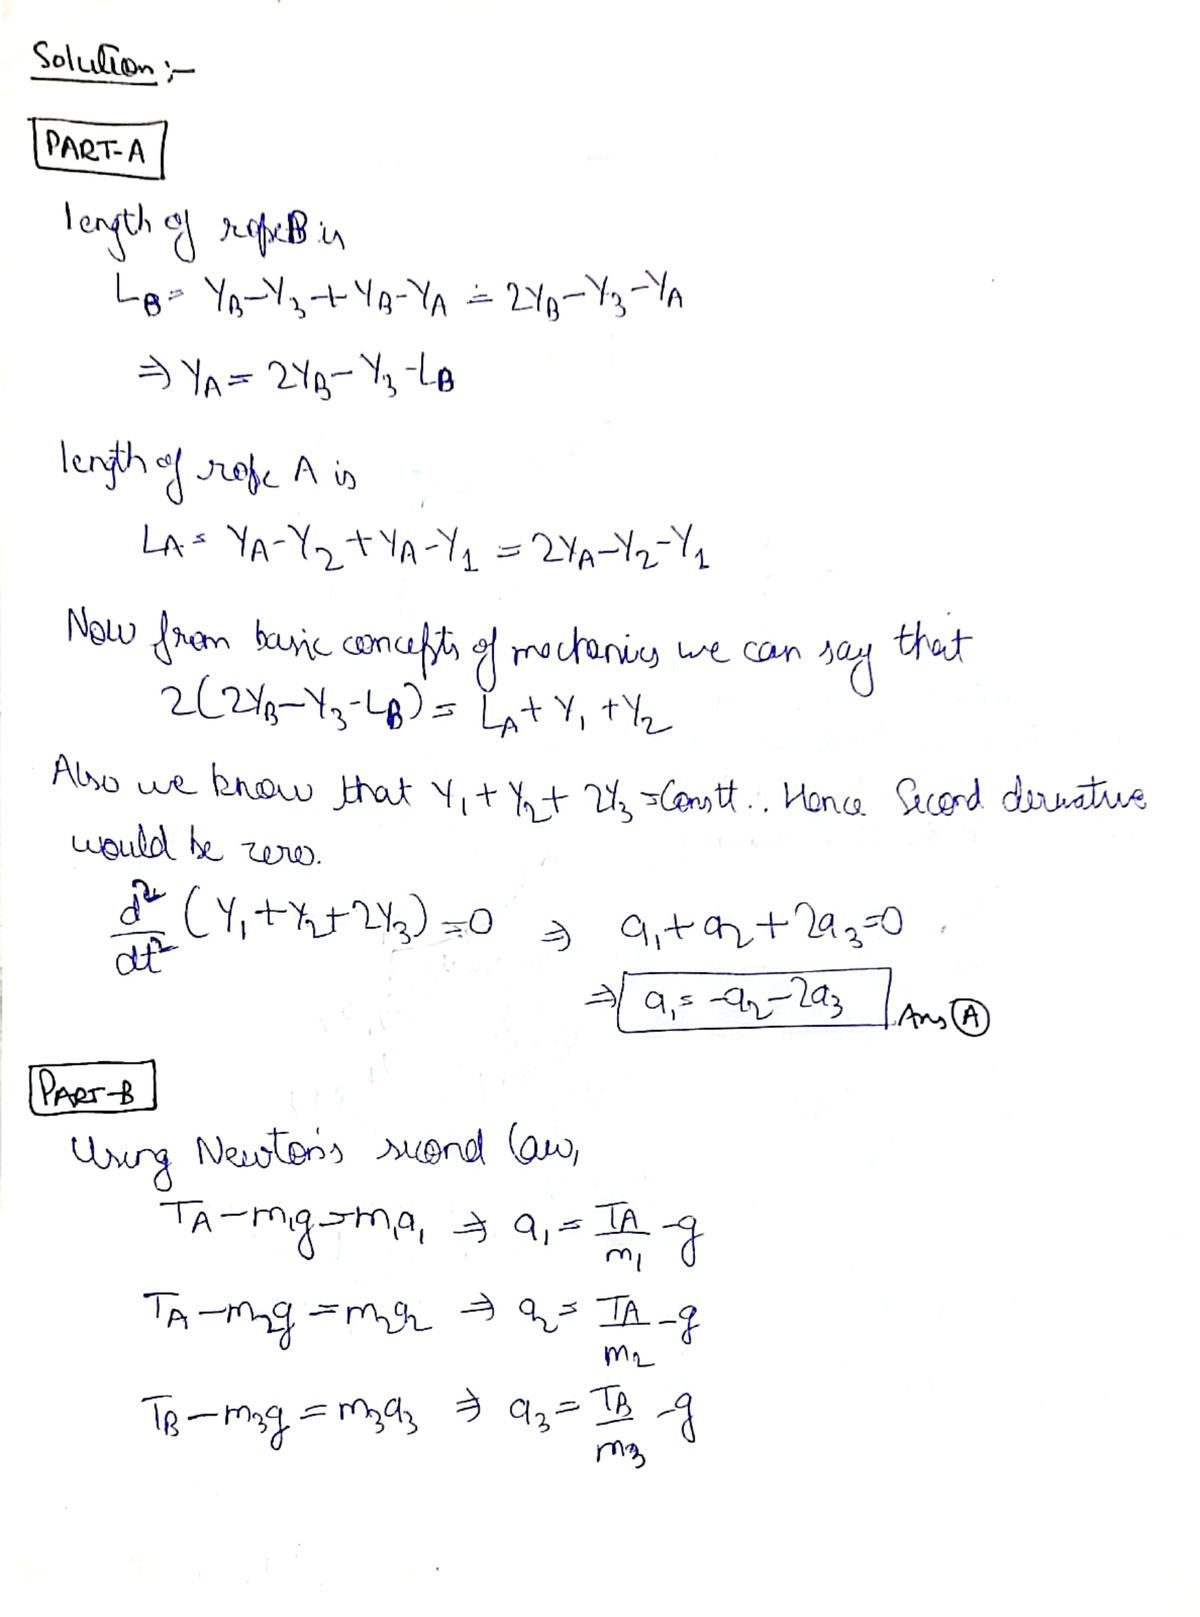 Solution :-
PART-A
length of rope B is
L_B = Y_B - Y_3 + Y_B - Y_A = 2Y_B - Y_3 - Y_A
⇒ Y_A = 2Y_B - Y_3 - L_B
length of rope A is
L_A = Y_A - Y_2 + Y_A - Y_1 = 2Y_A - Y_2 - Y_1
Now from basic concepts of mechanics we can say that
2(2Y_B - Y_3 - L_B) = L_A + Y_1 + Y_2
Also we know that Y_1 + Y_2 + 2Y_3 = Constt. . Hence Second derivative
would be zero.
d²/dt² (Y_1 + Y_2 + 2Y_3) = 0 ⇒ a_1 + a_2 + 2a_3 = 0
⇒ a_1 = -a_2 - 2a_3 Ans (A)
PART-B
Using Newton's second law,
T_A - m_1g = m_1a_1 ⇒ a_1 = T_A/m_1 - g
T_A - m_2g = m_2a_2 ⇒ a_2 = T_A/m_2 - g
T_B - m_3g = m_3a_3 ⇒ a_3 = T_B/m_3 - g